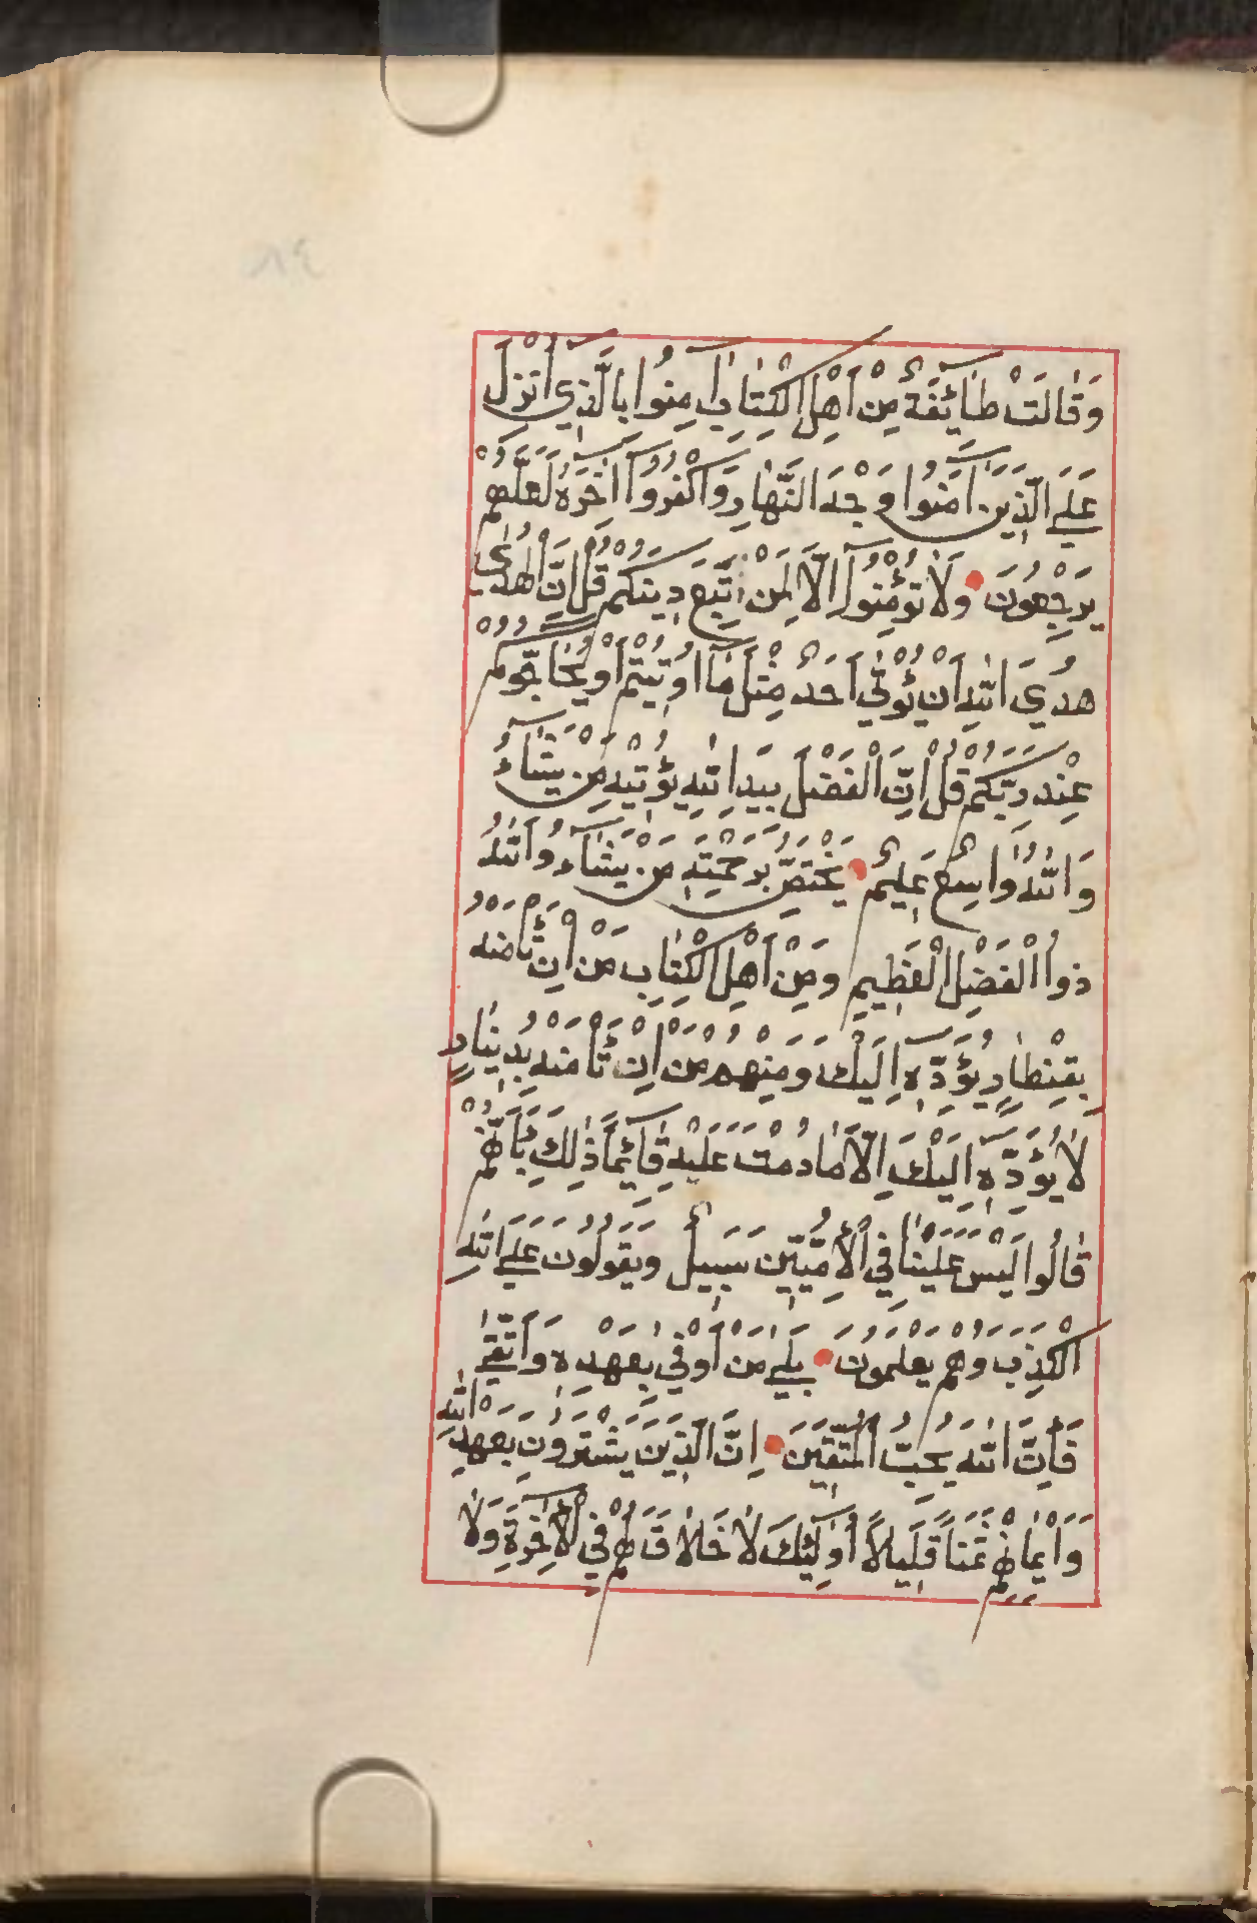 وَقَالَتْ طَائِفَةٌ مِنْ اَهْلِ الْكِتَابِ اٰمِنُوا بِالَّذِي اُنْزِلَ
عَلَي الَّذِينَ اٰمَنُوا وَجْهَ النَّهَارِ وَاكْفُرُوا اٰخِرَهُ لَعَلَّهُمْ
يَرْجِعُونَ وَلَا تُؤْمِنُوا اِلَّا لِمَنْ تَبِعَ دِينَكُمْ قُلْ اِنَّ الْهُدٰى
هُدَي اللهِ اَنْ يُؤْتٰي اَحَدٌ مِثْلَ مَا اُوتِيتُمْ اَوْ يُحَاجُّوكُمْ
عِنْدَ رَبِّكُمْ قُلْ اِنَّ الْفَضْلَ بِيَدِ اللهِ يُؤْتِيهِ مَنْ يَشَاءُ
وَاللهُ وَاسِعٌ عَلِيمٌ يَخْتَصُّ بِرَحْمَتِهِ مَنْ يَشَاءُ وَاللهُ
ذُوا الْفَضْلِ الْعَظِيمِ وَمِنْ اَهْلِ الْكِتَابِ مَنْ اِنْ تَأْمَنْهُ
بِقِنْطَارٍ يُؤَدِّهِ اِلَيْكَ وَمِنْهُمْ مَنْ اِنْ تَأْمَنْهُ بِدِينَارٍ
لَا يُؤَدِّهِ اِلَيْكَ اِلَّا مَا دُمْتَ عَلَيْهِ قَائِمًا ذٰلِكَ بِاَنَّهُمْ
قَالُوا لَيْسَ عَلَيْنَا فِي الْاُمِّيِّينَ سَبِيلٌ وَيَقُولُونَ عَلَي اللهِ
الْكَذِبَ وَهُمْ يَعْلَمُونَ بَلٰي مَنْ اَوْفٰي بِعَهْدِهِ وَاتَّقٰي
فَاِنَّ اللهَ يُحِبُّ الْمُتَّقِينَ اِنَّ الَّذِينَ يَشْتَرُونَ بِعَهْدِ اللهِ
وَاَيْمَانِهِمْ ثَمَنًا قَلِيلًا اُولٰئِكَ لَا خَلَاقَ لَهُمْ فِي الْاٰخِرَةِ وَلَا